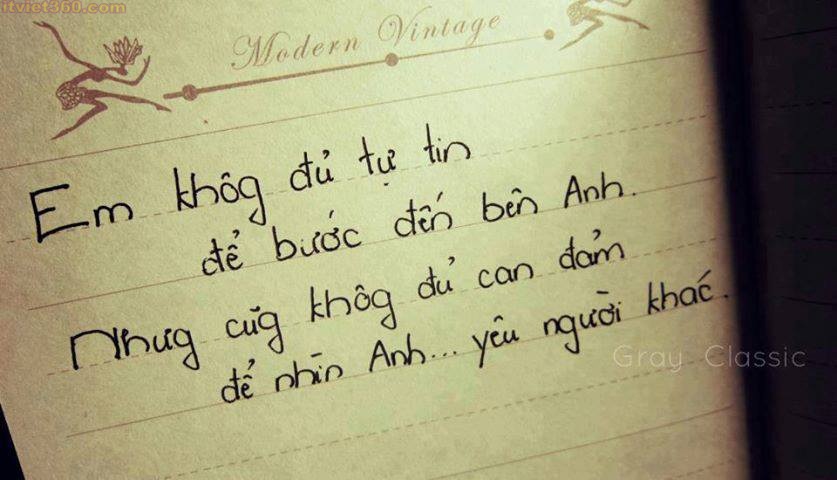 itviet360.com
Modern Vintage
Em khôg đủ tự tin
để bước đến bên Anh.
Nhưg cũg khôg đủ can đảm
để nhìn Anh... yêu người khác.
Gray Classic